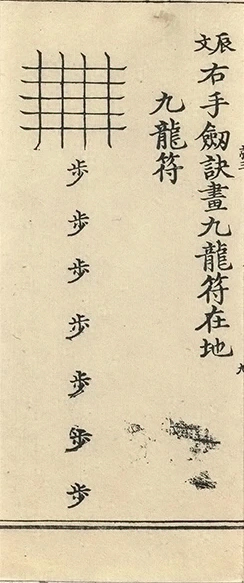 辰文右手劍訣畫九龍符在地
九龍符
步步步步步步步